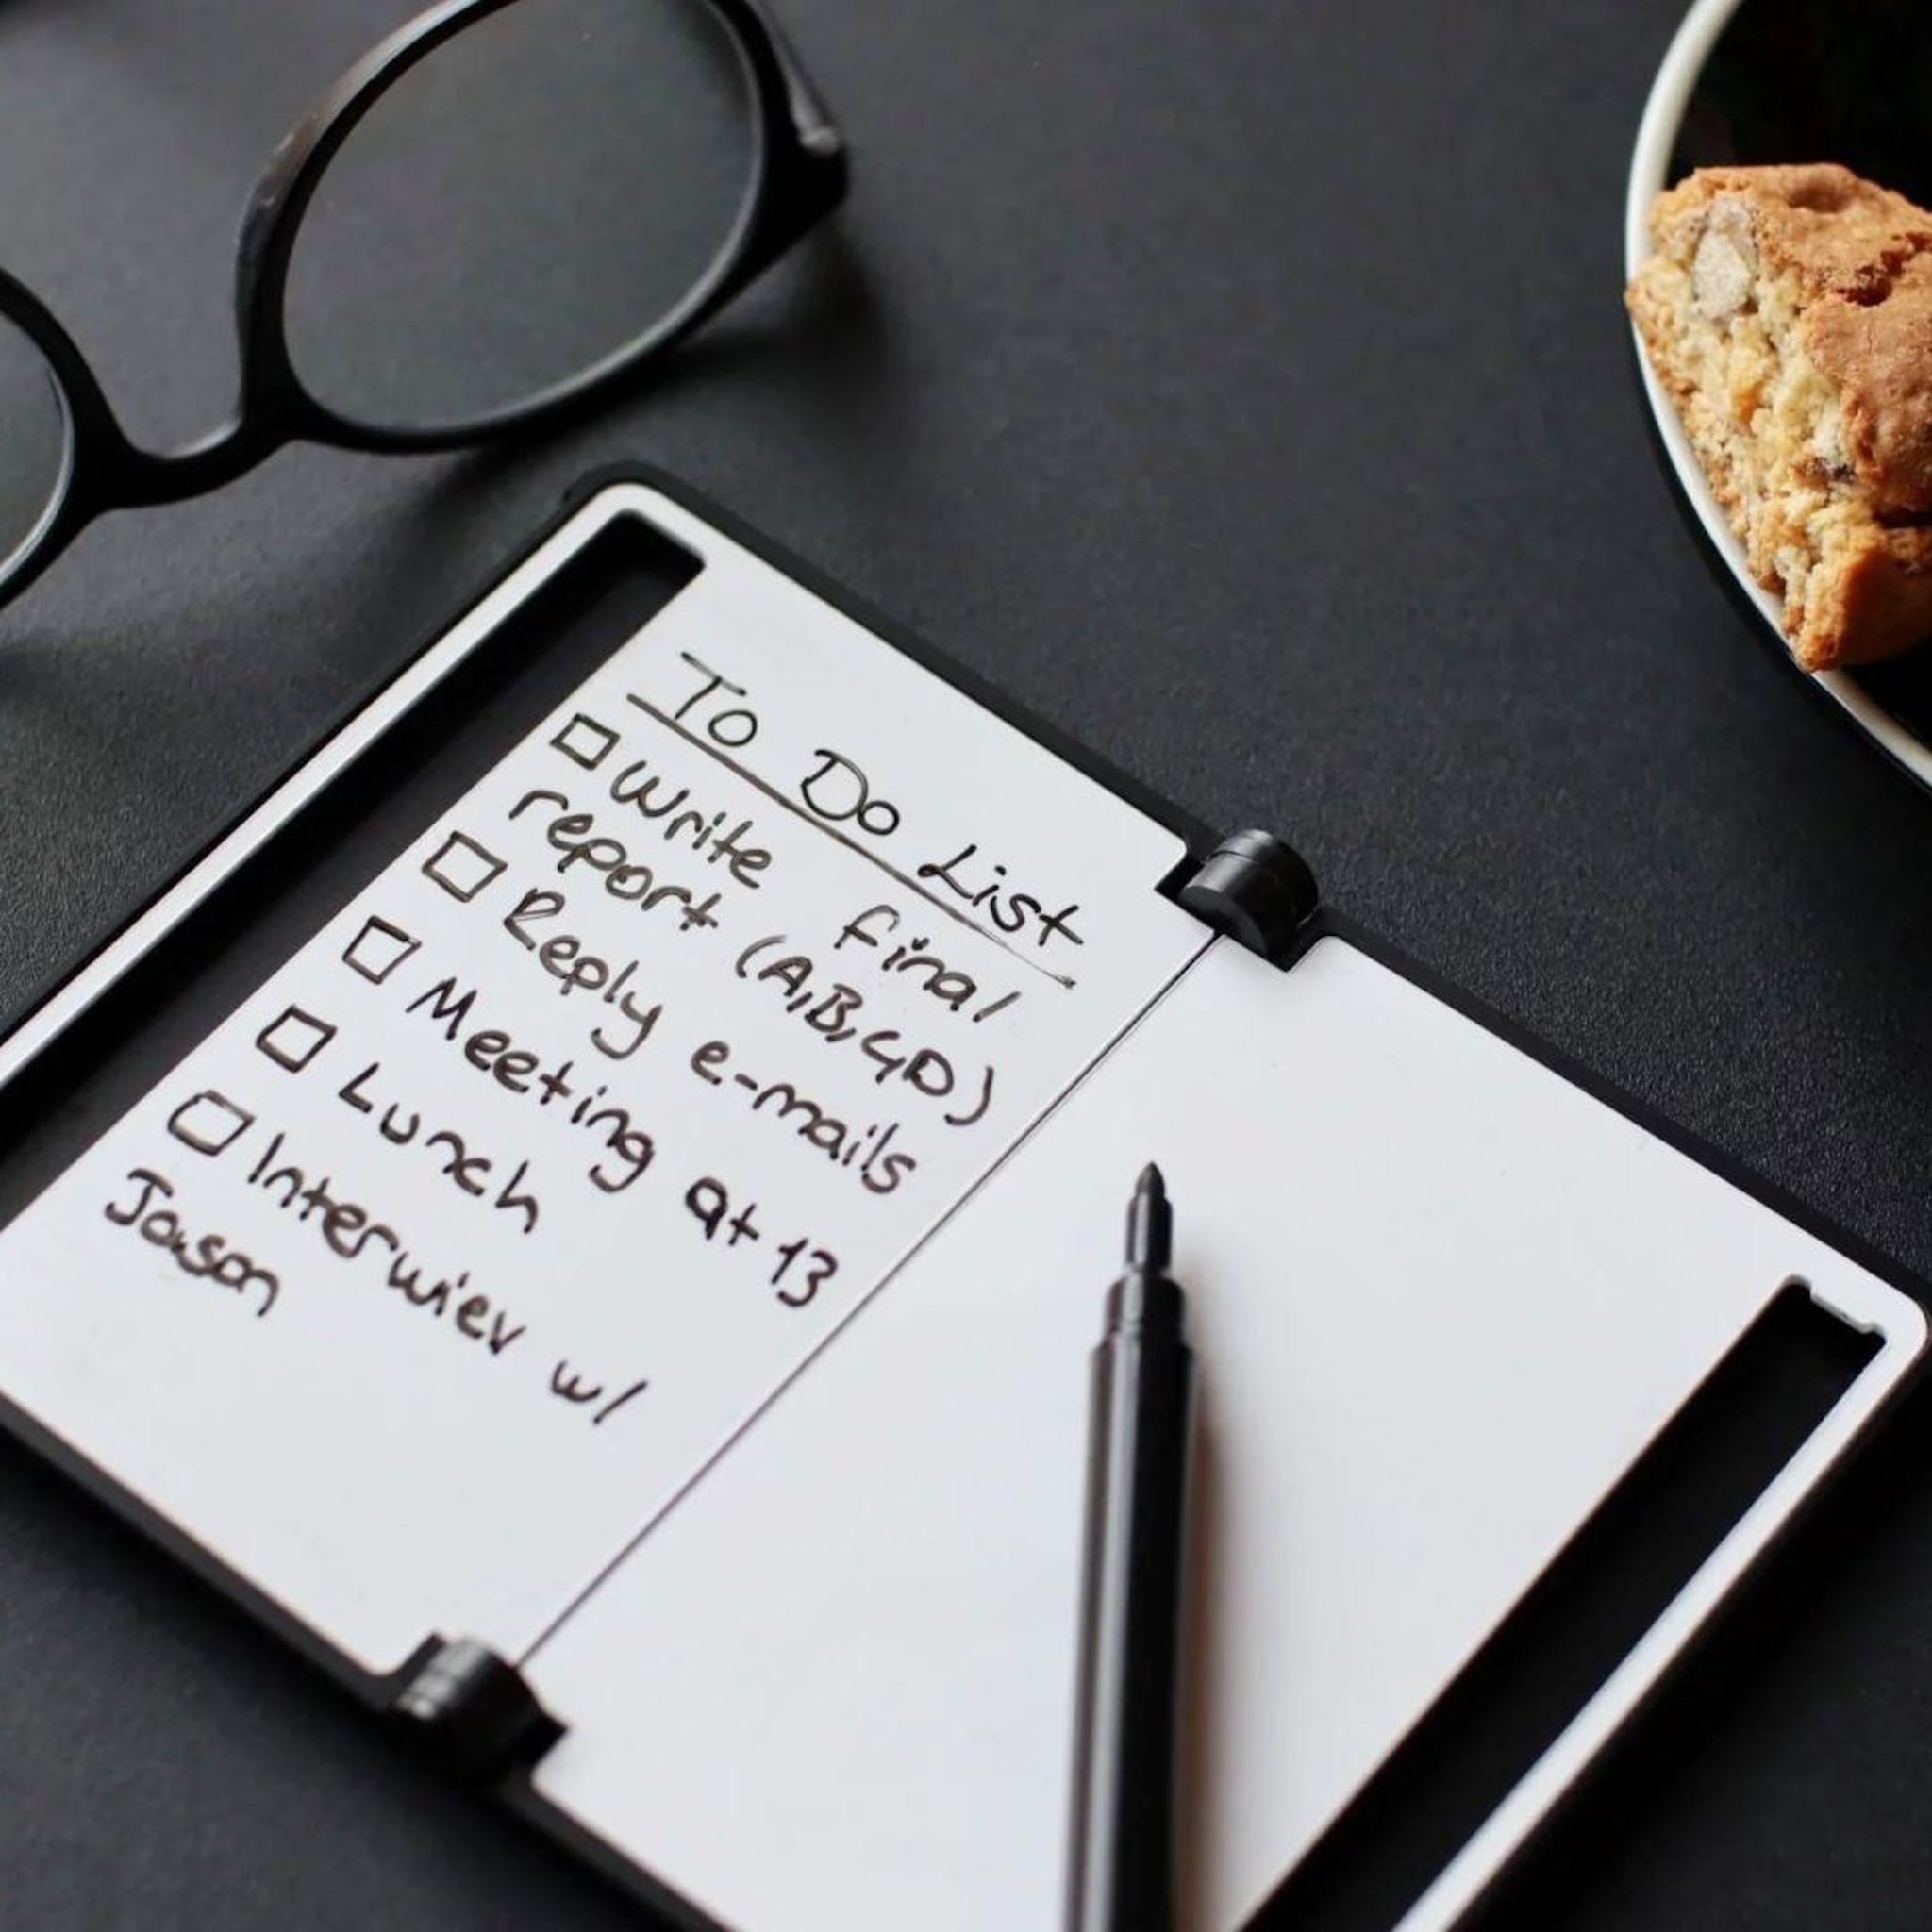 To Do List
Write final
report (A,B,C,D)
Reply e-mails
Meeting at 13
Lunch
Interwiev w/
Jason